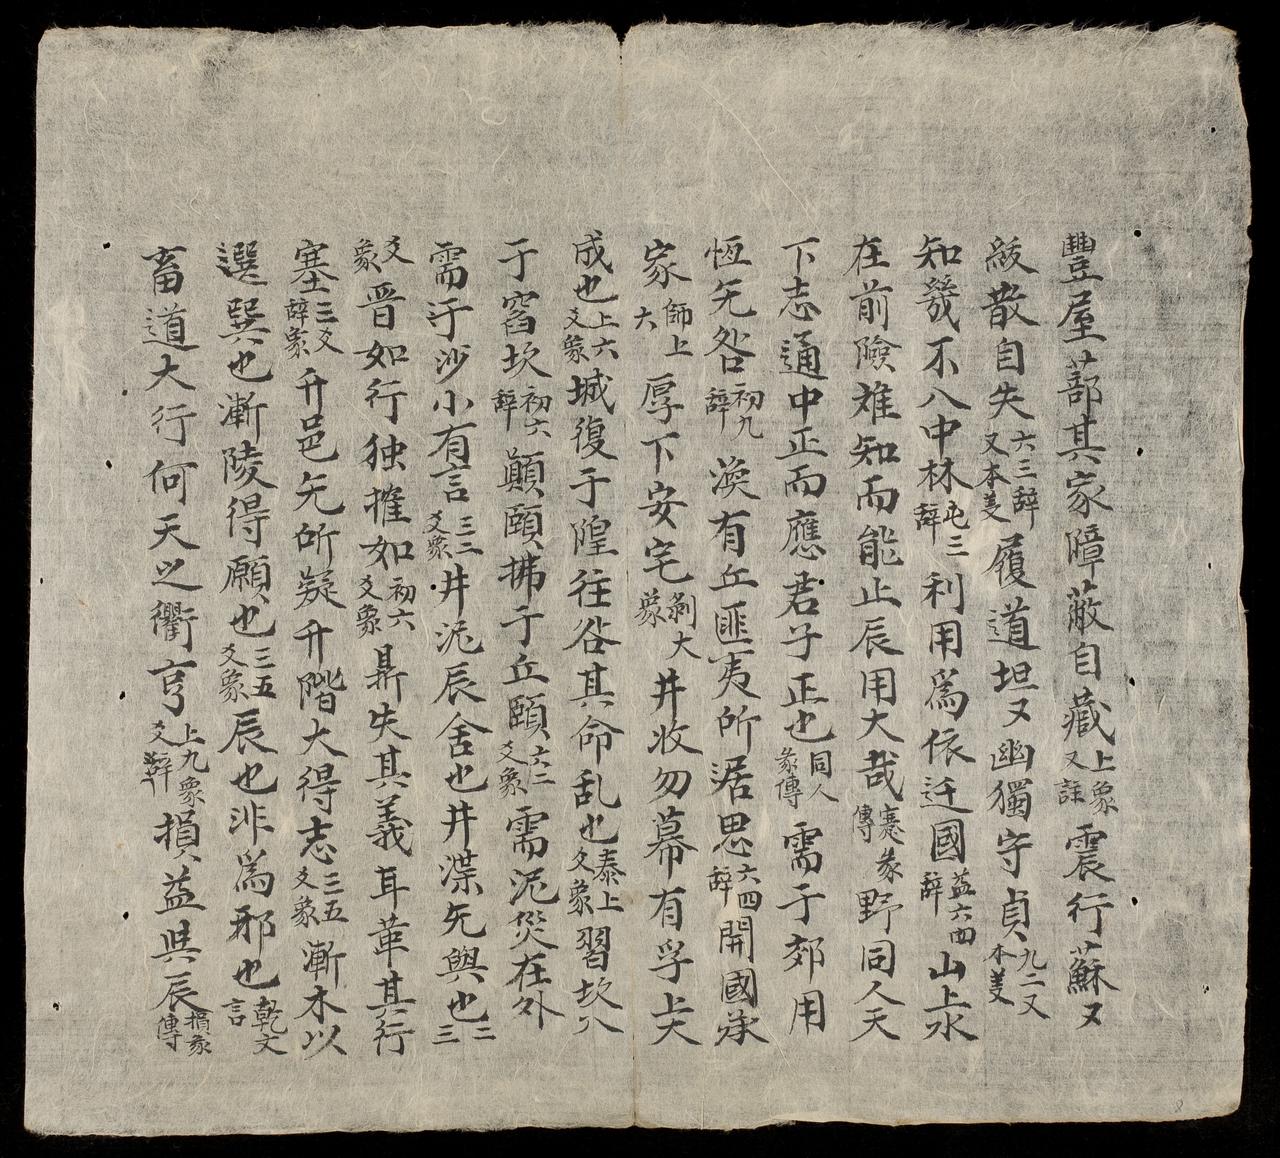 豐屋蔀其家障蔽自藏上象又註震行蘇又
緩散自失六三辞又本義履道坦又幽獨守貞九二又本義
知幾不八中林屯三辞利用爲依迁國益六四辞山上水
在前險难知而能止辰用大哉蹇彖傳野同人天
下志通中正而應君子正也同人彖傳需于郊用
恆旡咎初九辞渙有丘匪夷所涺思六四辞開國承
家師上六厚下安宅剝大象井收勿幕有孚上六
成也上六爻象城復于隍往咎其命乱也泰上爻象習坎八
于窞坎初六辞顛頤拂于丘頤六二爻象需泥災在外
需于沙小有言三三爻象井泥辰舍也井渫旡與也二三
爻象晋如行独摧如初六爻象鼎失其義耳革其行
塞三爻辞象升邑旡所疑升階大得志三五爻象漸木以
選巽也漸陵得願也三五爻象辰也非為邪也乾文言
畜道大行何天之衢亨上九象爻辭損益與辰損彖傳